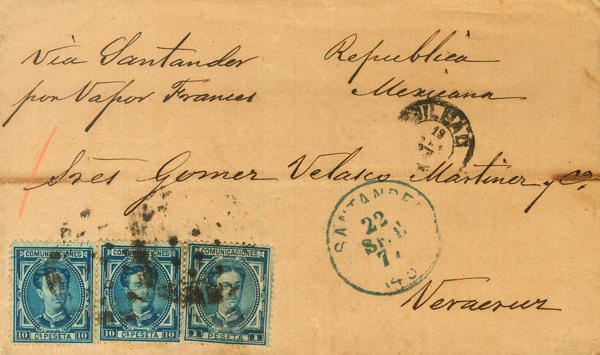 Via Santander
por Vapor Frances
Republica
Mexicana
BILBAO
19
Sres Gomez Velasco Martinez y Ca.
SANTANDER
22
SET
Veracruz
COMUNICACIONES
10 Cs PESETA 10
COMUNICACIONES
10 Cs PESETA 10
COMUNICACIONES
1 PESETA 1